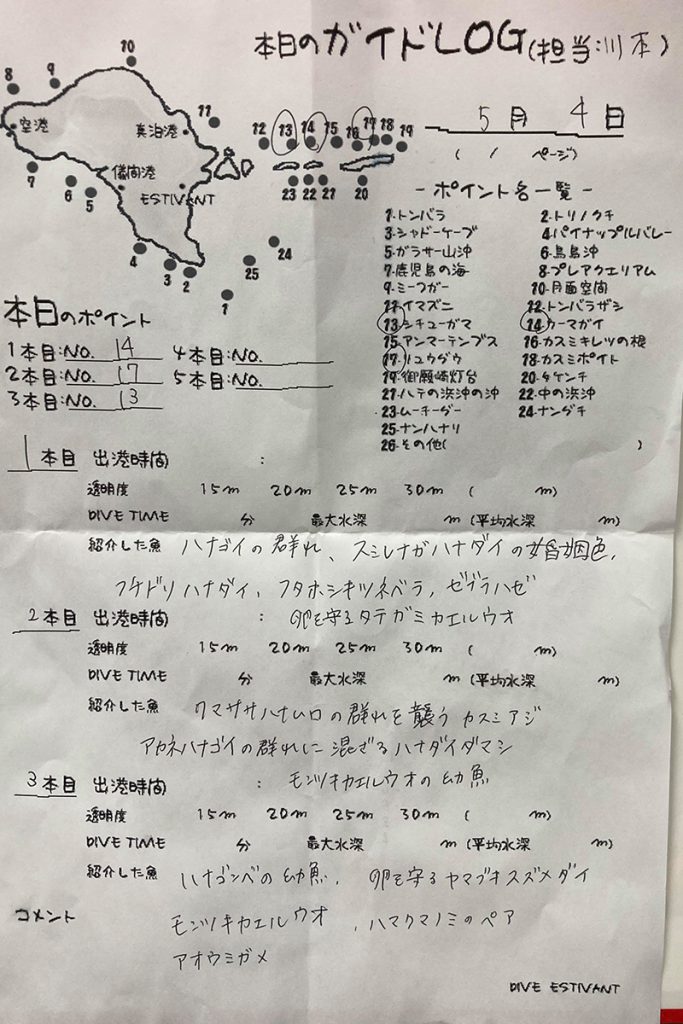 本日のガイドLOG(担当:川本)
5月 4日
( / ページ)
10
8 9
空港
真泊港
11
12 13 14 15 16 17 18 19
儀間港
7 6 5
ESTIVANT
23 22 21 20
24
4 3 2 25
1
-ポイント名一覧-
1.トンバラ 2.トリノクチ
3.シャドーケーブ 4.パイナップルバレー
5.ガラサー山沖 6.鳥島沖
7.鹿児島の海 8.プレアクエリアム
9.ミーフガー 10.月面空間
11.イマズニ 12.トンバラザシ
13.シチューガマ 14.カーマガイ
15.アンマーテンブス 16.カスミキレツの根
17.リュウダウ 18.カスミポイト
19.御願崎灯台 20.タケンチ
21.ハテの浜沖の沖 22.中の浜沖
23.ムーチーグー 24.ナンダチ
25.ナンハナリ
26.その他( )
本日のポイント
1本目:NO. 14 4本目:NO.
2本目:NO. 17 5本目:NO.
3本目:NO. 13
1本目 出港時間 :
透明度 15m 20m 25m 30m ( m)
DIVE TIME 分 最大水深 m (平均水深 m)
紹介した魚 ハナゴイの群れ、スミレナガハナダイの婚姻色,
フチドリハナダイ, フタホシキツネベラ, ゼブラハゼ
2本目 出港時間 : 卵を守るタテガミカエルウオ
透明度 15m 20m 25m 30m ( m)
DIVE TIME 分 最大水深 m (平均水深 m)
紹介した魚 クマササハナムロの群れを襲うカスミアジ
アカネハナゴイの群れに混ざるハナダイダマシ
3本目 出港時間 : モンツキカエルウオの幼魚
透明度 15m 20m 25m 30m ( m)
DIVE TIME 分 最大水深 m (平均水深 m)
紹介した魚 ハナゴンベの幼魚, 卵を守るヤマブキスズメダイ
コメント モンツキカエルウオ , ハマクマノミのペア
アオウミガメ
DIVE ESTIVANT